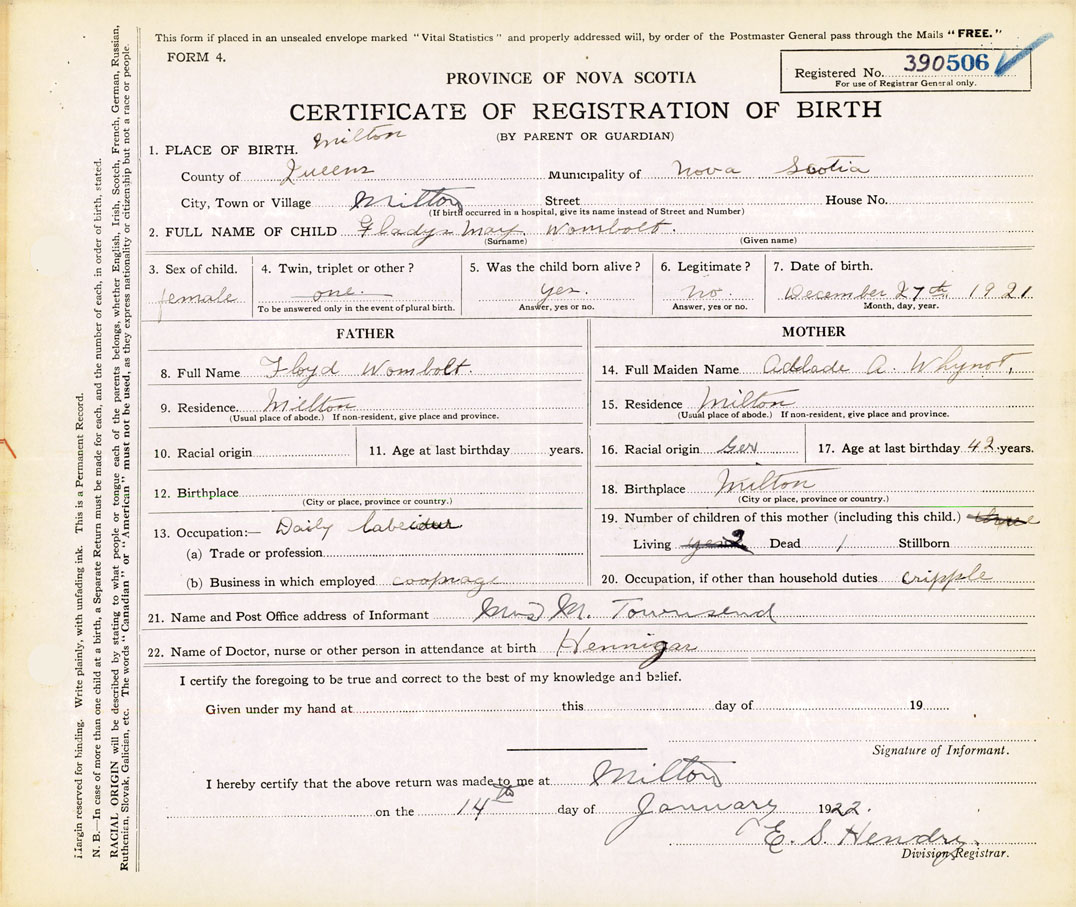 This form if placed in an unsealed envelope marked "Vital Statistics" and properly addressed will, by order of the Postmaster General pass through the Mails "FREE."
FORM 4.
Registered No. 390506
For use of Registrar General only.
PROVINCE OF NOVA SCOTIA
CERTIFICATE OF REGISTRATION OF BIRTH
(BY PARENT OR GUARDIAN)
1. PLACE OF BIRTH. Milton
County of Queens Municipality of Nova Scotia
City, Town or Village Milton Street House No.
(If birth occurred in a hospital, give its name instead of Street and Number)
2. FULL NAME OF CHILD Gladys May Wombolt.
(Surname) (Given name)
3. Sex of child. 4. Twin, triplet or other? 5. Was the child born alive? 6. Legitimate? 7. Date of birth.
female one. yes. no. December 27th 1921
To be answered only in the event of plural birth. Answer, yes or no. Answer, yes or no. Month, day, year.
FATHER
8. Full Name Floyd Wombolt.
9. Residence. Milton
(Usual place of abode.) If non-resident, give place and province.
10. Racial origin 11. Age at last birthday years.
12. Birthplace
(City or place, province or country.)
13. Occupation:— Daily
(a) Trade or profession
(b) Business in which employed cooprage
MOTHER
14. Full Maiden Name Adlade A. Whynot,
15. Residence Milton
(Usual place of abode.) If non-resident, give place and province.
16. Racial origin Ger 17. Age at last birthday 42 years.
18. Birthplace Milton
(City or place, province or country.)
19. Number of children of this mother (including this child.) three
Living 2 Dead 1 Stillborn
20. Occupation, if other than household duties cripple
21. Name and Post Office address of Informant Mrs M. Townsend
22. Name of Doctor, nurse or other person in attendance at birth Hennigar
I certify the foregoing to be true and correct to the best of my knowledge and belief.
Given under my hand at this day of 19
Signature of Informant.
I hereby certify that the above return was made to me at Milton
on the 14th day of January 1922.
E. S. Hendry.
Division Registrar.
Margin reserved for binding. Write plainly, with unfading ink. This is a Permanent Record.
N. B.—In case of more than one child at a birth, a Separate Return must be made for each, and the number of each, in order of birth, stated.
RACIAL ORIGIN will be described by stating to what people or tongue each of the parents belongs, whether English, Irish, Scotch, French, German, Russian,
Ruthenian, Slovak, Galician, etc. The words "Canadian" or "American" must not be used, as they express nationality or citizenship but not a race or people.